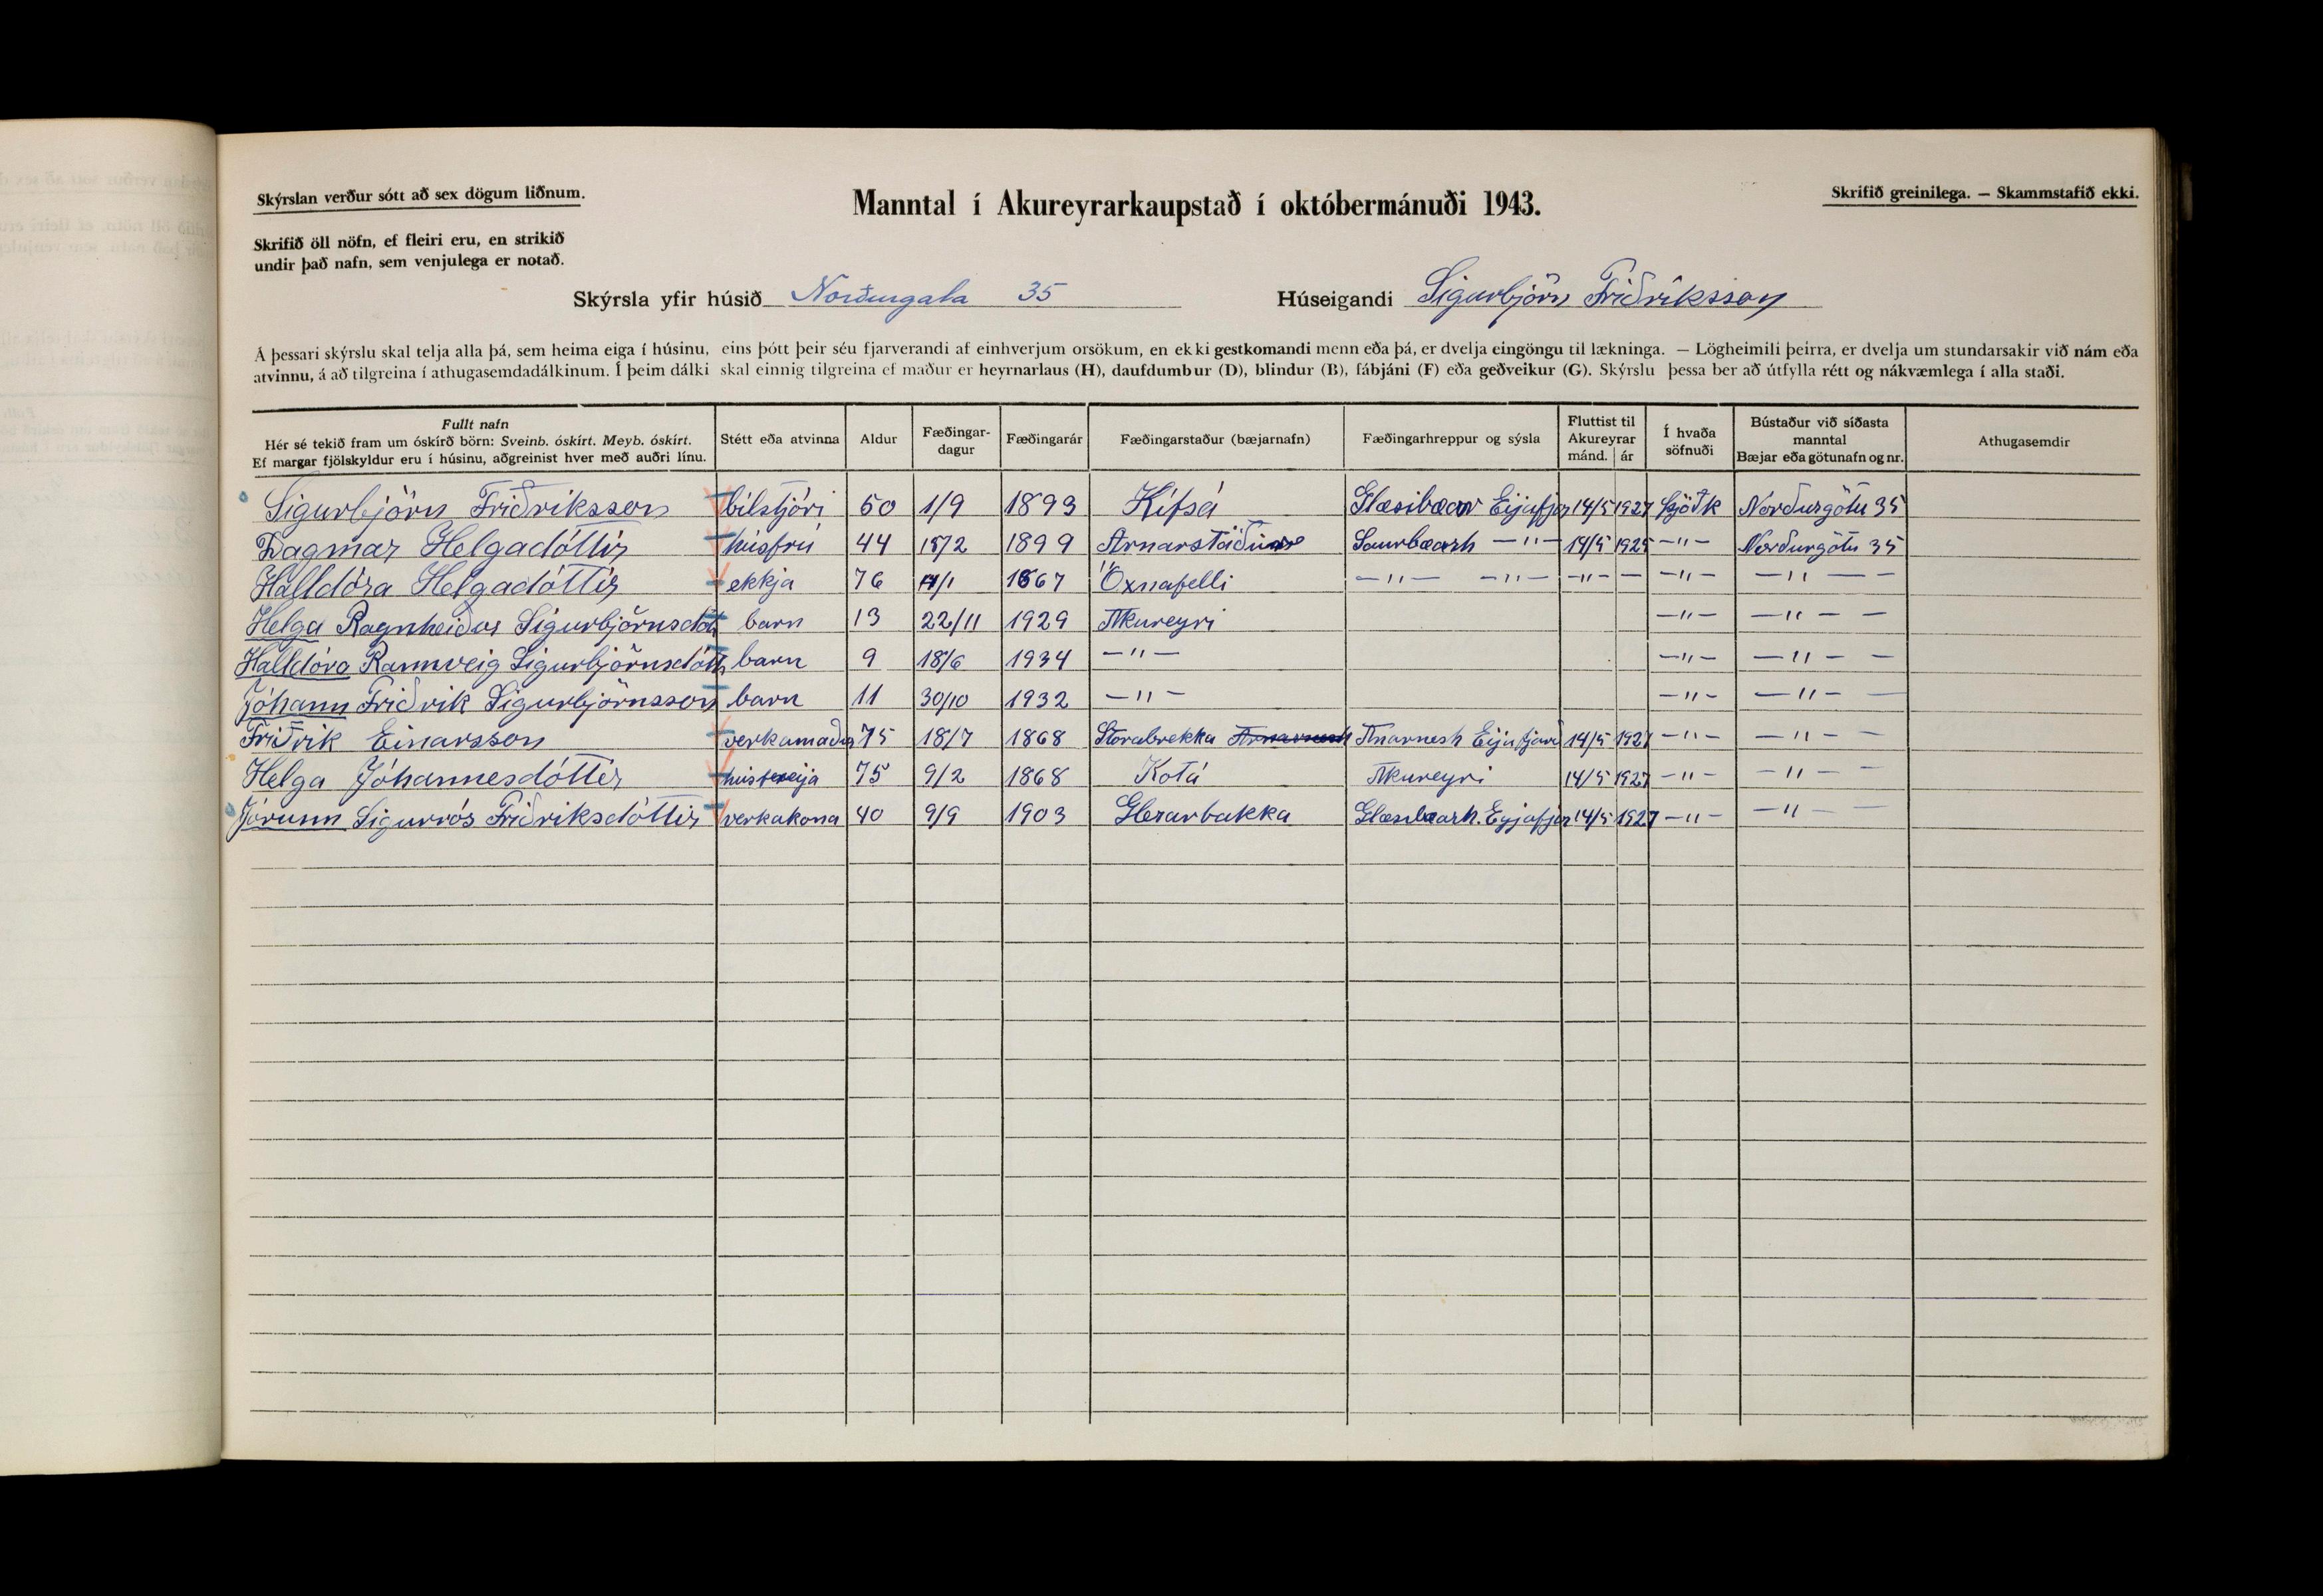 Skýrslan verður sótt að sex dögum liðnum.
Manntal í Akureyrarkaupstað í októbermánuði 1943.
Skrifið greinilega. — Skammstafið ekki.
Skrifið öll nöfn, ef fleiri eru, en strikið
undir það nafn, sem venjulega er notað.
Skýrsla yfir húsið Norðurgata 35 Húseigandi Sigurbjörn Friðriksson
Á þessari skýrslu skal telja alla þá, sem heima eiga í húsinu, eins þótt þeir séu fjarverandi af einhverjum orsökum, en ekki gestkomandi menn eða þá, er dvelja eingöngu til lækninga. — Lögheimili þeirra, er dvelja um stundarsakir við nám eða
atvinnu, á að tilgreina í athugasemdadálkinum. Í þeim dálki skal einnig tilgreina ef maður er heyrnarlaus (H), daufdumbur (D), blindur (B), fábjáni (F) eða geðveikur (G). Skýrslu þessa ber að útfylla rétt og nákvæmlega í alla staði.
Fullt nafn
Hér sé tekið fram um óskírð börn: Sveinb. óskírt. Meyb. óskírt.
Ef margar fjölskyldur eru í húsinu, aðgreinist hver með auðri línu.
Stétt eða atvinna
Aldur
Fæðingar-
dagur
Fæðingarár
Fæðingarstaður (bæjarnafn)
Fæðingarhreppur og sýsla
Fluttist til
Akureyrar
mánd. ár
Í hvaða
söfnuði
Bústaður við síðasta
manntal
Bæjar eða götunafn og nr.
Athugasemdir
Sigurbjörn Friðriksson bílstjóri 50 1/9 1893 Kífsá Glæsibæar Eyjafjar 14/5 1927 þjóðk Norðurgötu 35
Dagmar Helgadóttir húsfrú 44 15/2 1899 Arnarstöðum Saurbæarh —"— 14/5 1925 —"— Norðurgötu 35
Halldóra Helgadóttir ekkja 76 1867 Öxnafelli —"— —"— —"— — —"— —"— — —
Helga Ragnheiður Sigurbjörnsdótt barn 13 22/11 1929 Akureyri —"— —"— — —
Halldóra Rannveig Sigurbjörnsdótt barn 9 18/6 1934 —"— —"— —"— — —
Jóhann Friðrik Sigurbjörnsson barn 11 30/10 1932 —"— —"— —"— —
Friðrik Einarsson verkamaður 75 18/7 1868 Stórabrekka Arnarnesh Arnarnesh Eyjafjarð 14/5 1927 —"— —"— —
Helga Jóhannesdóttir 75 9/2 1868 Kotá Akureyri 14/5 1927 —"— —"— — —
Jórunn Sigurrós Friðriksdóttir verkakona 40 9/9 1903 Glerarbakka Glæsibæarh. Eyjafjar 14/5 1927 —"— —"— —